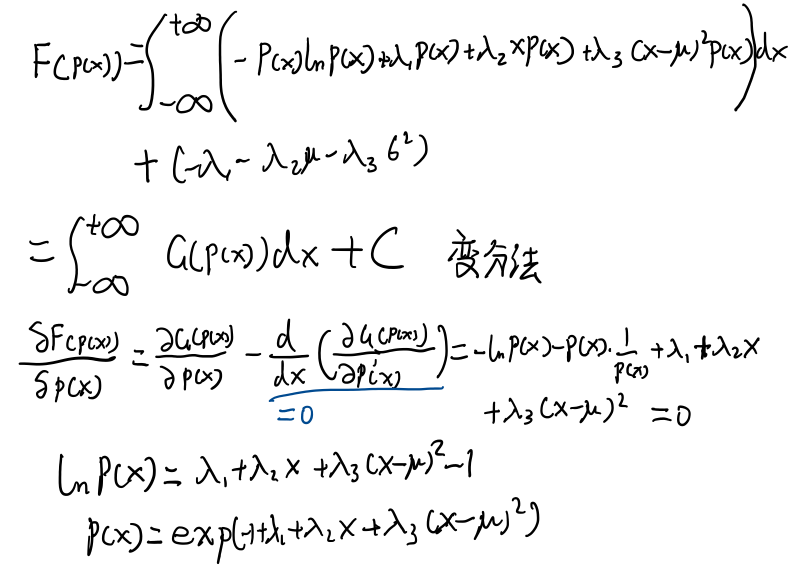 F(p(x))=∫_{-∞}^{+∞}(-p(x)ln p(x)+λ₁p(x)+λ₂xp(x)+λ₃(x-μ)²p(x))dx
+(-λ₁-λ₂μ-λ₃σ²)
=∫_{-∞}^{+∞} G(p(x))dx+C 变分法
δF(p(x))/δp(x) = ∂G(p(x))/∂p(x) - d/dx(∂G(p(x))/∂p'(x)) = -ln p(x)-p(x)·1/p(x)+λ₁+λ₂x
=0 +λ₃(x-μ)² =0
ln p(x)= λ₁+λ₂x+λ₃(x-μ)²-1
p(x)=exp(-1+λ₁+λ₂x+λ₃(x-μ)²)